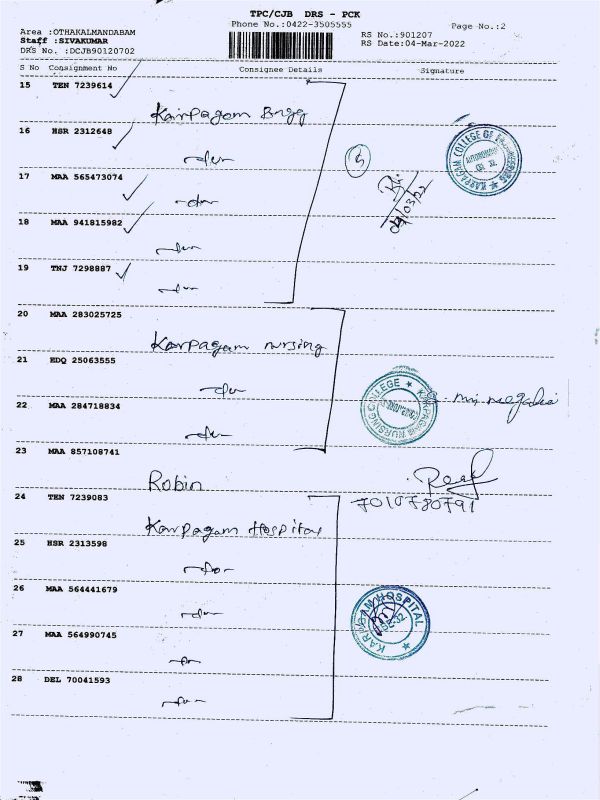 TPC/CJB DRS - PCK
Phone No.:0422-3505555
Page No.:2
Area :OTHAKALMANDABAM
Staff :SIVAKUMAR
DRS No. :DCJB90120702
RS No.:901207
RS Date:04-Mar-2022
S No Consignment No Consignee Details Signature
15 TEN 7239614
Karpagam Engg
16 HSR 2312648
5
KARPAGAM COLLEGE OF
17 MAA 565473074
04/03/22
18 MAA 941815982
19 TNJ 7298887
20 MAA 283025725
Karpagam nursing
21 EDQ 25063555
KARPAGAM NURSING COLLEGE
22 MAA 284718834
23 MAA 857108741
Robin
24 TEN 7239083
Karpagam Hospital
25 HSR 2313598
26 MAA 564441679
HOSPITAL
27 MAA 564990745
28 DEL 70041593